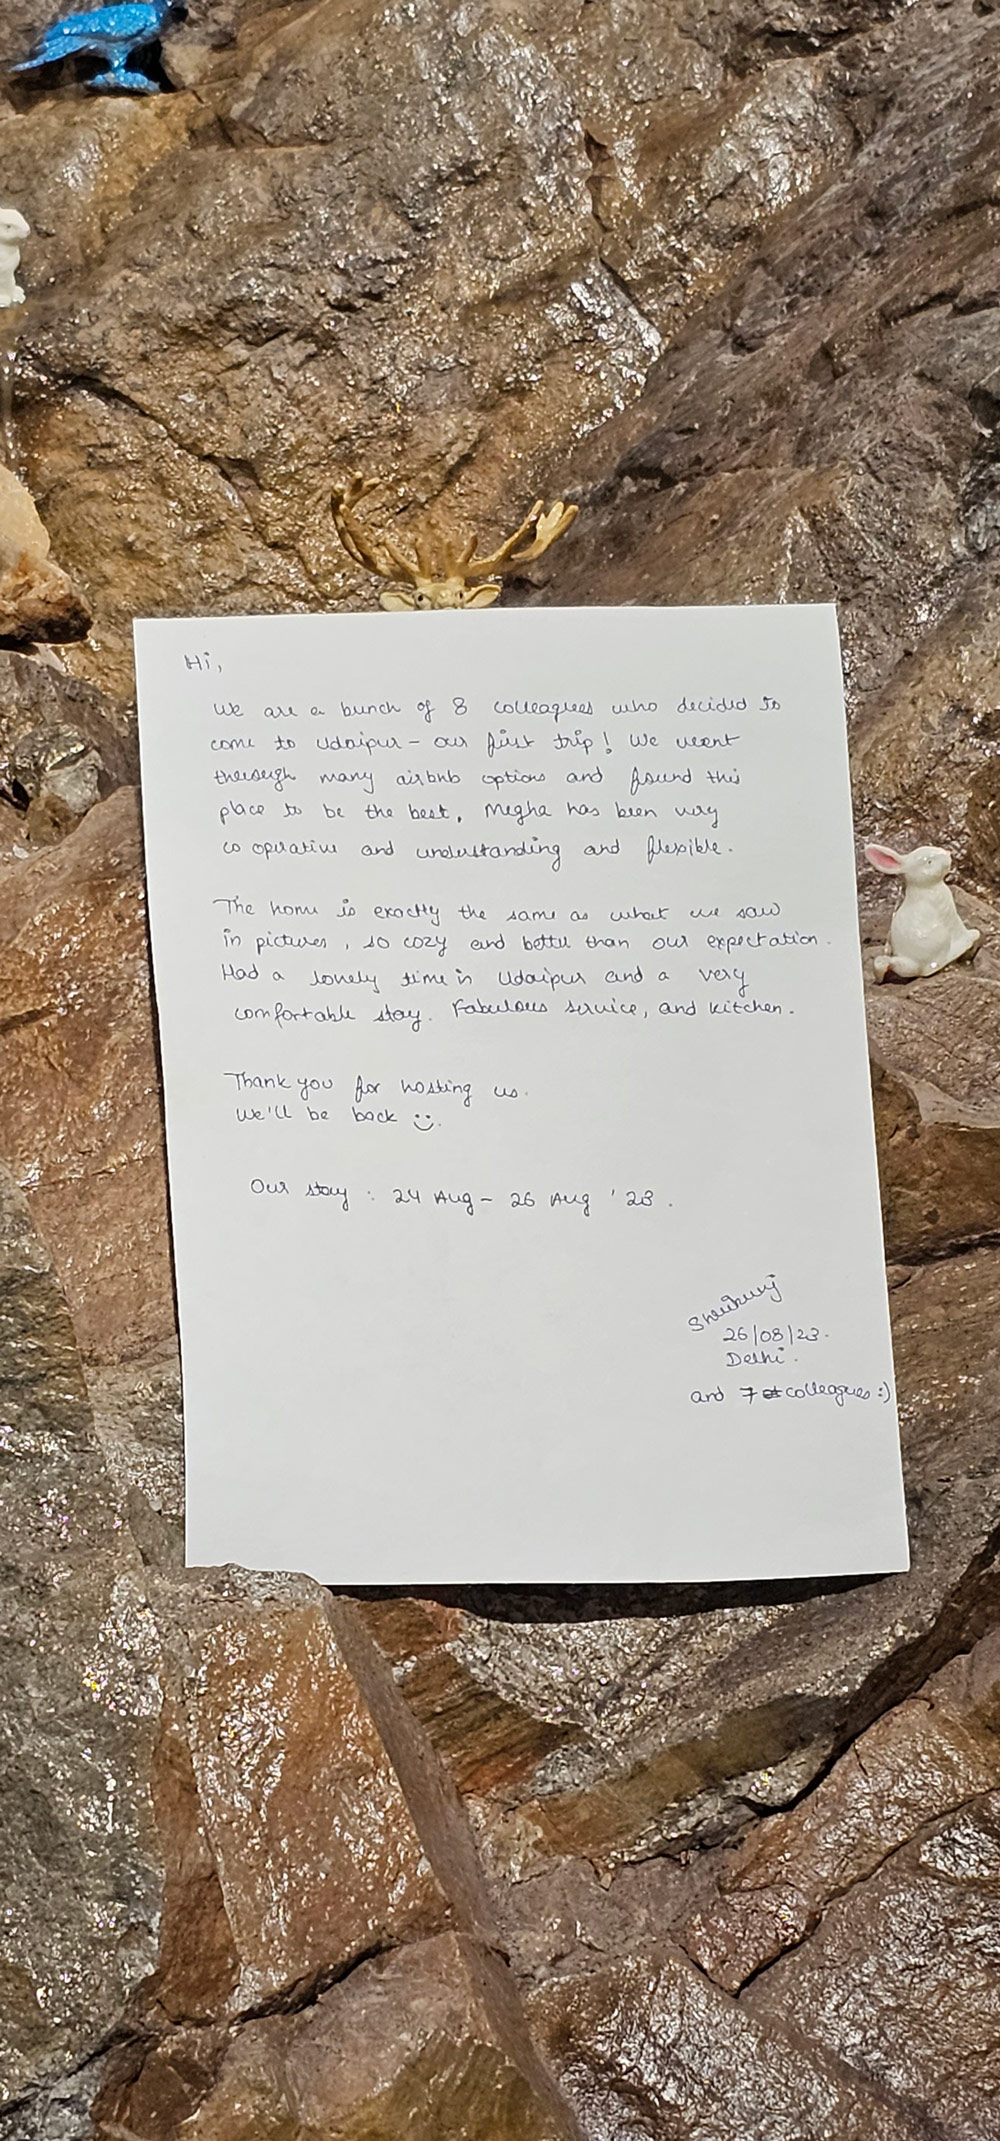 Hi,
We are a bunch of 8 colleagues who decided to
come to Udaipur - our first trip! We went
through many airbnb options and found this
place to be the best. Megha has been very
co operative and understanding and flexible.
The home is exactly the same as what we saw
in pictures, so cozy and better than our expectation.
Had a lovely time in Udaipur and a very
comfortable stay. Fabulous service, and kitchen.
Thank you for hosting us.
We'll be back :)
Our stay : 24 Aug - 26 Aug '23.
26/08/23.
Delhi.
and 7 colleagues :)